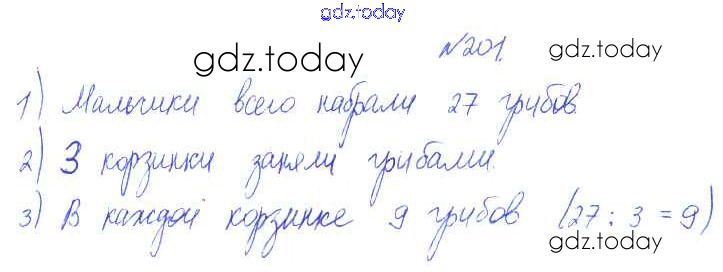 gdz.today
№201.
gdz.today
gdz.today
1) Мальчики всего набрали 27 грибов.
2) 3 корзинки заняли грибами.
3) В каждой корзинке 9 грибов (27 : 3 = 9)
gdz.today
gdz.today